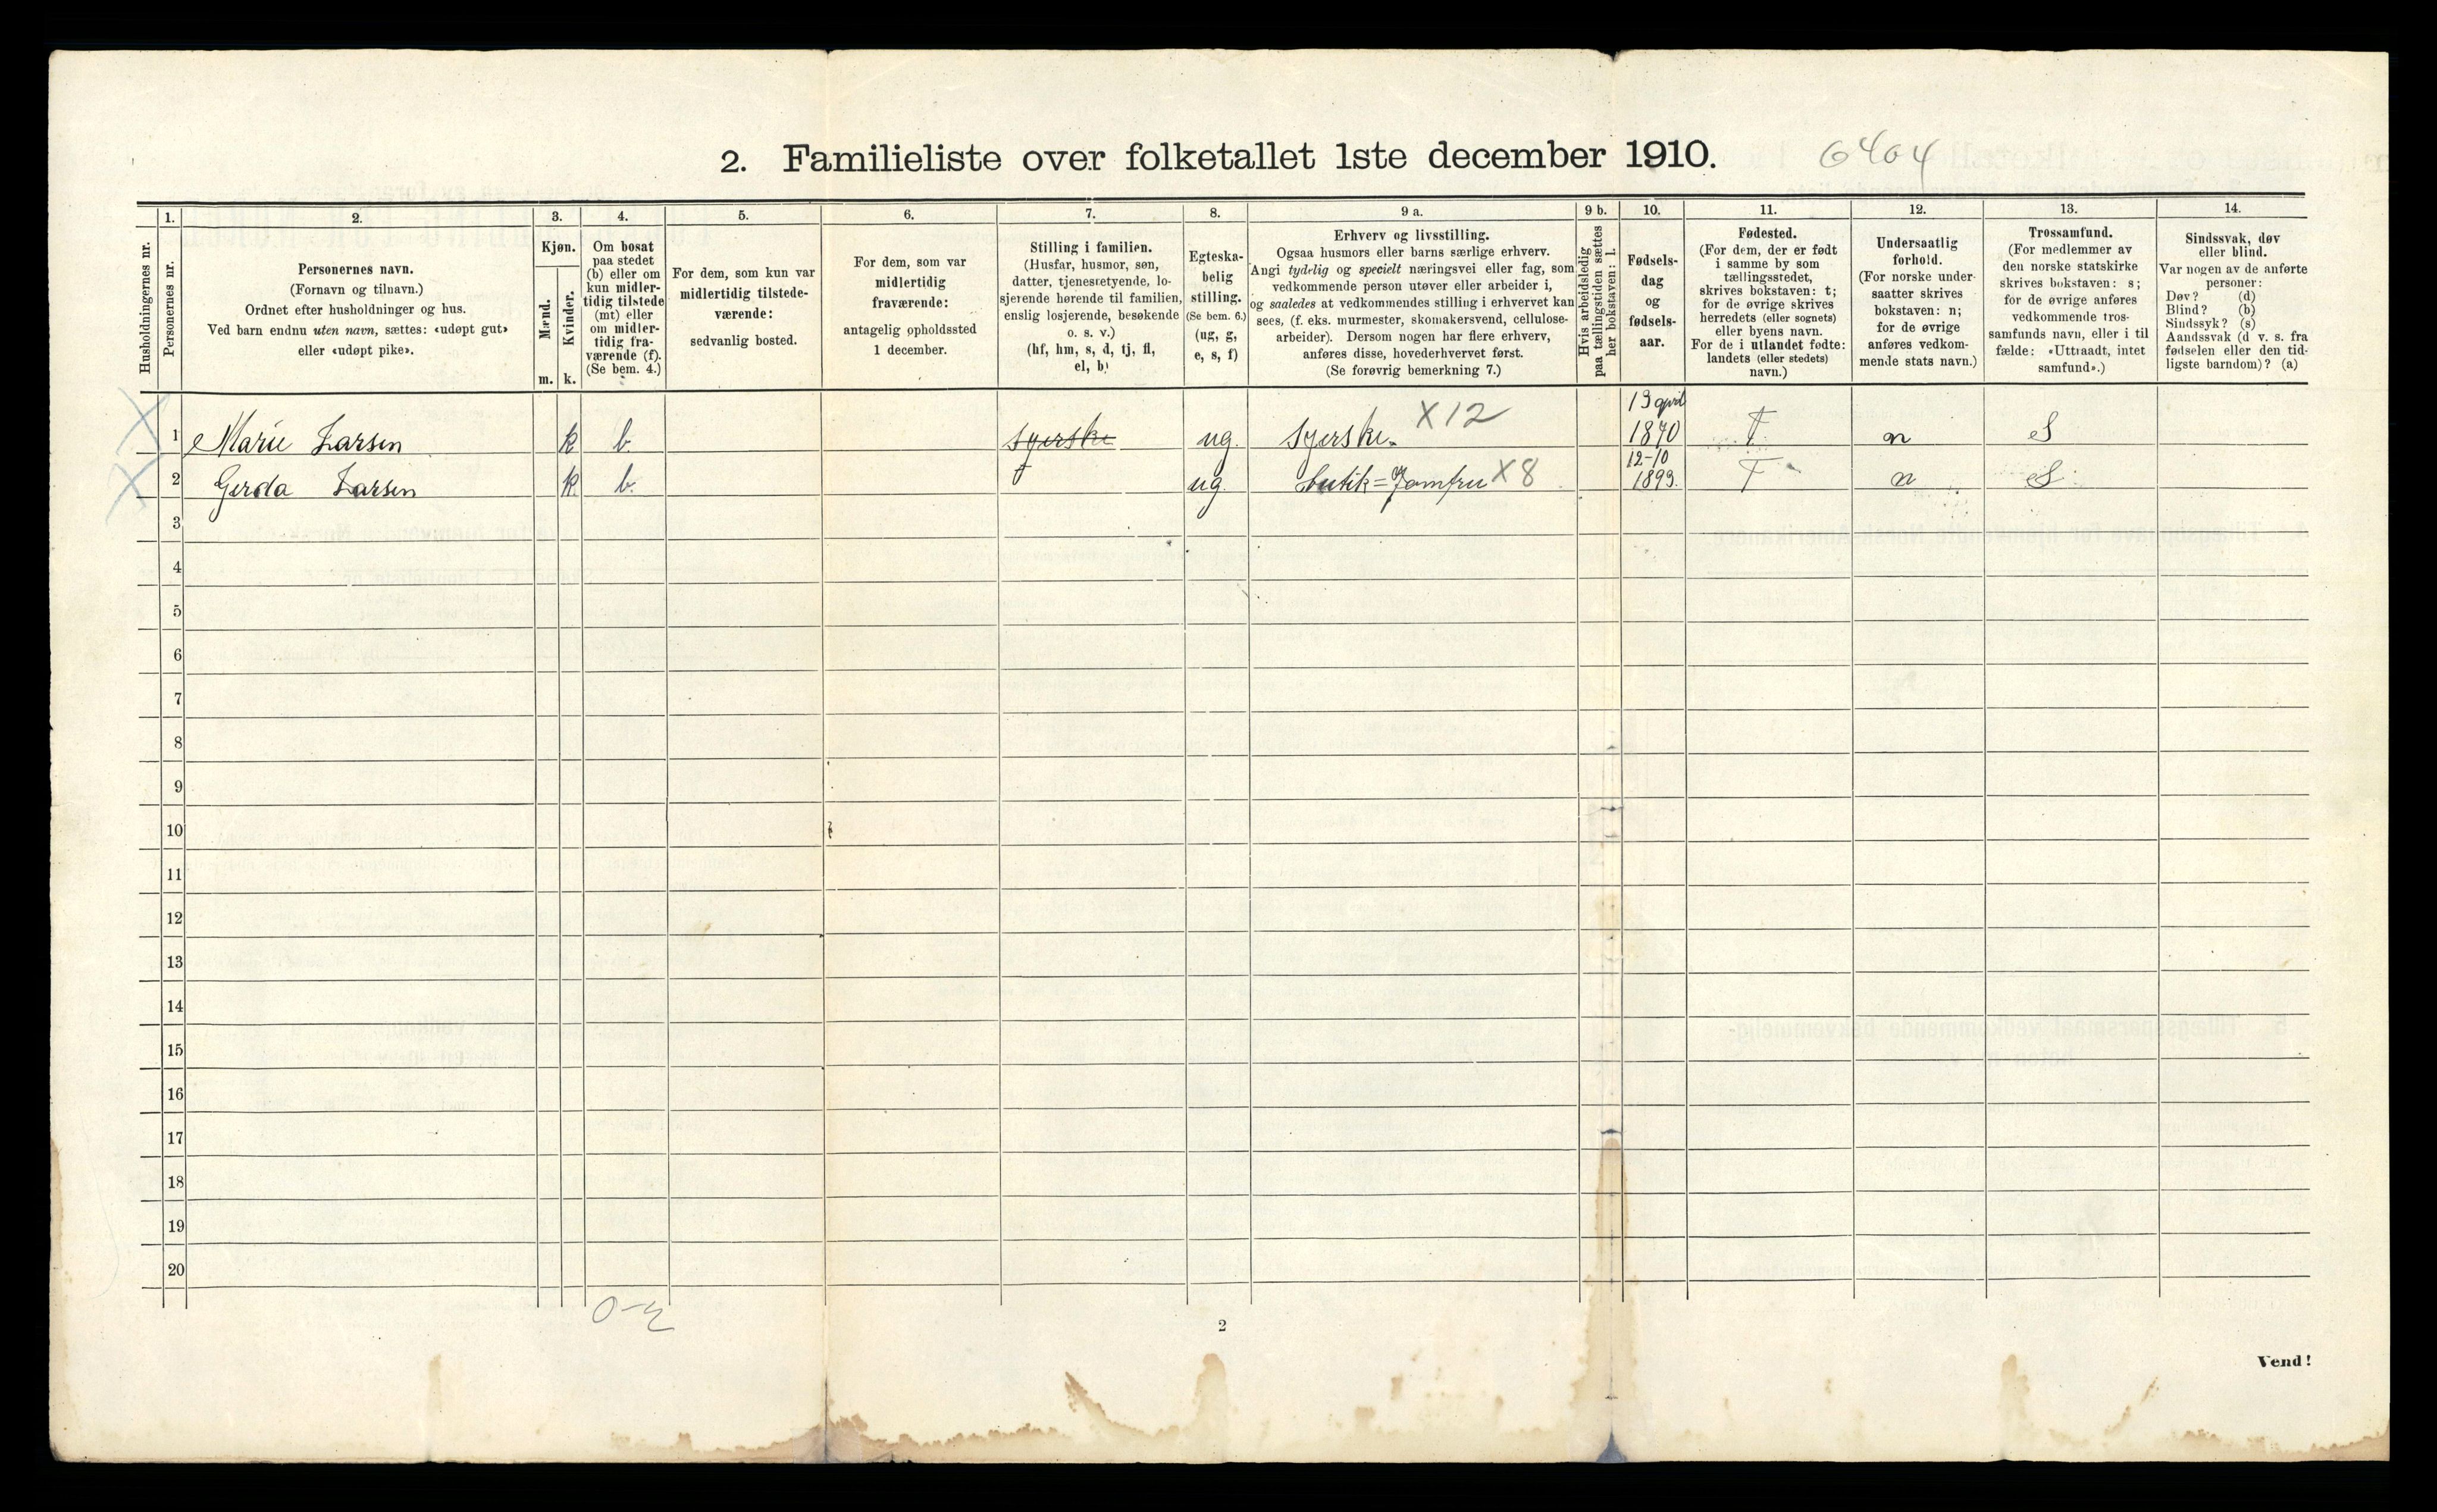 2. Familieliste over folketallet 1ste december 1910. 6404
Husholdningernes nr.
1.
Personernes nr.
2.
Personernes navn.
(Fornavn og tilnavn.)
Ordnet efter husholdninger og hus.
Ved barn endnu uten navn, sættes: «udøpt gut»
eller «udøpt pike».
3.
Kjøn.
Mænd.
Kvinder.
m. k.
4.
Om bosat
paa stedet
(b) eller om
kun midler-
tidig tilstede
(mt) eller
om midler-
tidig fra-
værende (f).
(Se bem. 4.)
5.
For dem, som kun var
midlertidig tilstede-
værende:
sedvanlig bosted.
6.
For dem, som var
midlertidig
fraværende:
antagelig opholdssted
1 december.
7.
Stilling i familien.
(Husfar, husmor, søn,
datter, tjenestetyende, lo-
sjerende hørende til familien,
enslig losjerende, besøkende
o. s. v.)
(hf, hm, s, d, tj, fl,
el, b)
8.
Egteska-
belig
stilling.
(Se bem. 6.)
(ug, g,
e, s, f)
9 a.
Erhverv og livsstilling.
Ogsaa husmors eller barns særlige erhverv.
Angi tydelig og specielt næringsvei eller fag, som
vedkommende person utøver eller arbeider i,
og saaledes at vedkommendes stilling i erhvervet kan
sees, (f. eks. murmester, skomakersvend, cellulose-
arbeider). Dersom nogen har flere erhverv,
anføres disse, hovederhvervet først.
(Se forøvrig bemerkning 7.)
9 b.
Hvis arbeidsledig
paa tællingstiden sættes
her bokstaven: l.
10.
Fødsels-
dag
og
fødsels-
aar.
11.
Fødested.
(For dem, der er født
i samme by som
tællingsstedet,
skrives bokstaven: t;
for de øvrige skrives
herredets (eller sognets)
eller byens navn.
For de i utlandet fødte:
landets (eller stedets)
navn.)
12.
Undersaatlig
forhold.
(For norske under-
saatter skrives
bokstaven: n;
for de øvrige
anføres vedkom-
mende stats navn.)
13.
Trossamfund.
(For medlemmer av
den norske statskirke
skrives bokstaven: s;
for de øvrige anføres
vedkommende tros-
samfunds navn, eller i til
fælde: «Uttraadt, intet
samfund».)
14.
Sindssvak, døv
eller blind.
Var nogen av de anførte
personer:
Døv? (d)
Blind? (b)
Sindssyk? (s)
Aandssvak (d v. s. fra
fødselen eller den tid-
ligste barndom)? (a)
1 Marie Larsen k b. Syerske ug. Syerske. X12 13 april 1870 T n S
2 Gerda Larsen k. b. ug. butik=Jomfru X8 12-10 1893. T n S
3
4
5
6
7
8
9
10
11
12
13
14
15
16
17
18
19
20
0-2
2
Vend!